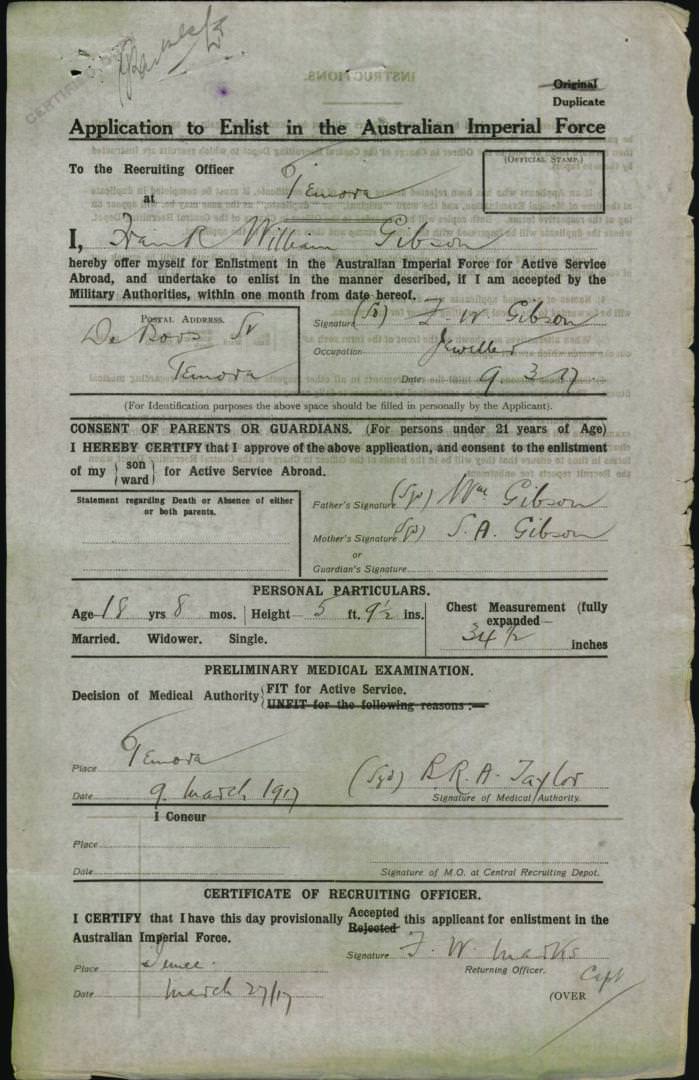 CERTIFIED COPY
INSTRUCTIONS.
Original
Duplicate
Application to Enlist in the Australian Imperial Force
To the Recruiting Officer
(Official Stamp.)
at Temora
I, Frank William Gibson
hereby offer myself for Enlistment in the Australian Imperial Force for Active Service
Abroad, and undertake to enlist in the manner described, if I am accepted by the
Military Authorities, within one month from date hereof.
Postal Address.
De Boos St
Temora
Signature (Sd) F. W Gibson
Occupation Jeweller
Date 9 3 17
(For Identification purposes the above space should be filled in personally by the Applicant).
CONSENT OF PARENTS OR GUARDIANS. (For persons under 21 years of Age)
I HEREBY CERTIFY that I approve of the above application, and consent to the enlistment
of my { son ward } for Active Service Abroad.
Statement regarding Death or Absence of either
or both parents.
Father's Signature (Sgd) Wm Gibson
Mother's Signature (Sgd) S. A. Gibson
or
Guardian's Signature
PERSONAL PARTICULARS.
Age 18 yrs 8 mos. Height 5 ft. 9½ ins.
Chest Measurement (fully
expanded—
34½ inches
Married. Widower. Single.
PRELIMINARY MEDICAL EXAMINATION.
Decision of Medical Authority { FIT for Active Service.
UNFIT for the following reasons :—
Place Temora
Date 9. March 1917
(Sgd) B. R. A. Taylor
Signature of Medical Authority.
I Concur
Place
Date
Signature of M.O. at Central Recruiting Depot.
CERTIFICATE OF RECRUITING OFFICER.
I CERTIFY that I have this day provisionally Accepted Rejected this applicant for enlistment in the
Australian Imperial Force.
Signature F. W. Marks
Capt
Returning Officer.
Place
Date March 27/17
(OVER